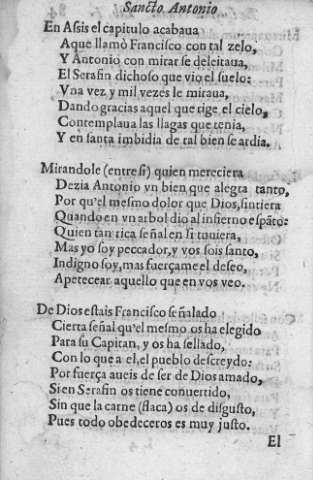 Sancto Antonio
En Assis el capitulo acabaua
Aque llamò Francisco con tal zelo,
Y Antonio con mirar se deleitaua,
El Serafin dichoso que vio el suelo:
Vna vez y mil vezes le miraua,
Dando gracias aquel que rige el cielo,
Contemplaua las llagas que tenia,
Y en santa imbidia de tal bien se ardia.
Mirandole (entre si) quien mereciera
Dezia Antonio vn bien que alegra tanto,
Por qu'el mesmo dolor que Dios, sintiera
Quando en vn arbol dio al infierno espãto:
Quien tan rica señal en si tuuiera,
Mas yo soy peccador, y vos sois santo,
Indigno soy, mas fuerçame el deseo,
Apetecer aquello que en vos veo.
De Dios estais Francisco señalado
Cierta señal qu'el mesmo os ha elegido
Para su Capitan, y os ha sellado,
Con lo que a el, el pueblo descreydo:
Por fuerça aueis de ser de Dios amado,
Si en Serafin os tiene conuertido,
Sin que la carne (flaca) os de disgusto,
Pues todo obedeceros es muy justo.
El